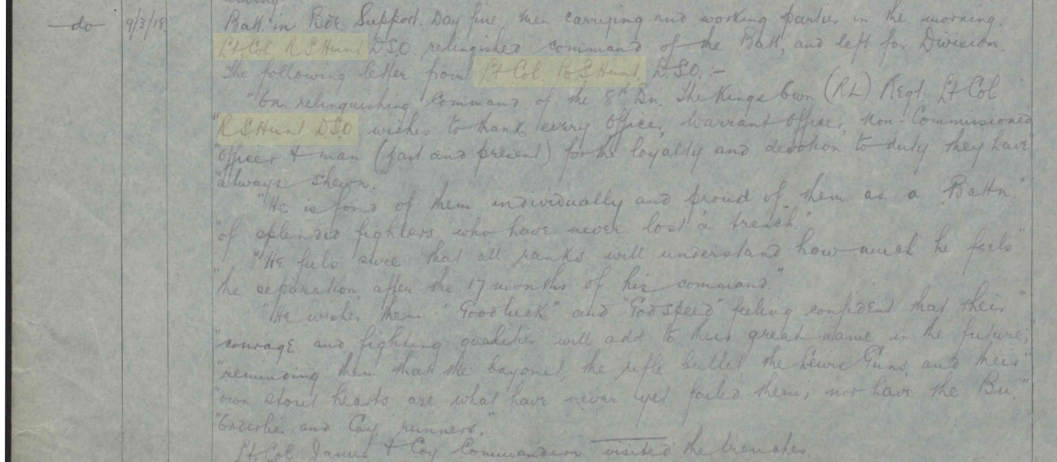 —do— 9/3/18 Batt. in Bde Support. Day fine men carrying and working parties in the morning.
Lt Col R S Hunt DSO. relinquished command of the Batt, and left for Division.
The following letter from Lt Col R S Hunt, DSO. :-
"On relinquishing command of the 8th Bn. The Kings Own (RL) Regt, Lt Col
"R S Hunt DSO wishes to thank every Officer, Warrant Officer, Non-Commissioned
"Officer & man (past and present) for the loyalty and devotion to duty they have"
"always shewn.
"He is fond of them individually and proud of them as a Battn"
"of splendid fighters, who have never lost a trench"
"He feels sure that all ranks will understand how much he feels"
"the separation after the 17 months of his command."
"He wishes them "Good luck" and "God speed" feeling confident that their"
"courage and fighting qualities will add to their great name in the future,"
"reminding them that the bayonet the rifle bullet the Lewis Guns, and their"
"own stout hearts are what have never yet failed them, nor have the Bn."
and Coy runners."
Lt. Col James & Coy Commanders visited the trenches.